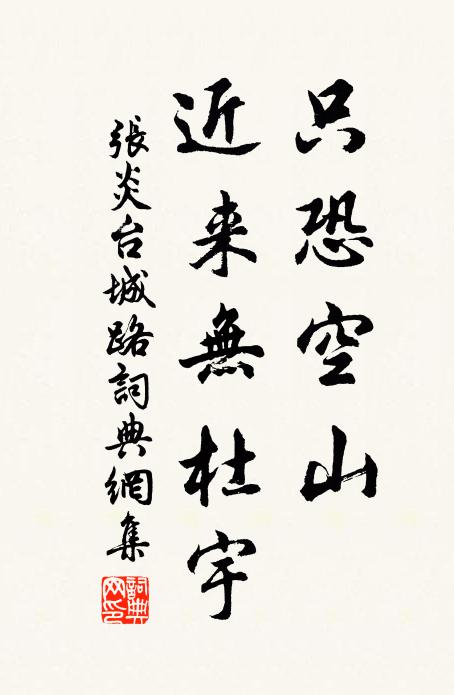 只恐空山
近来無杜宇
張炎台城路詞典網集
詞典网印